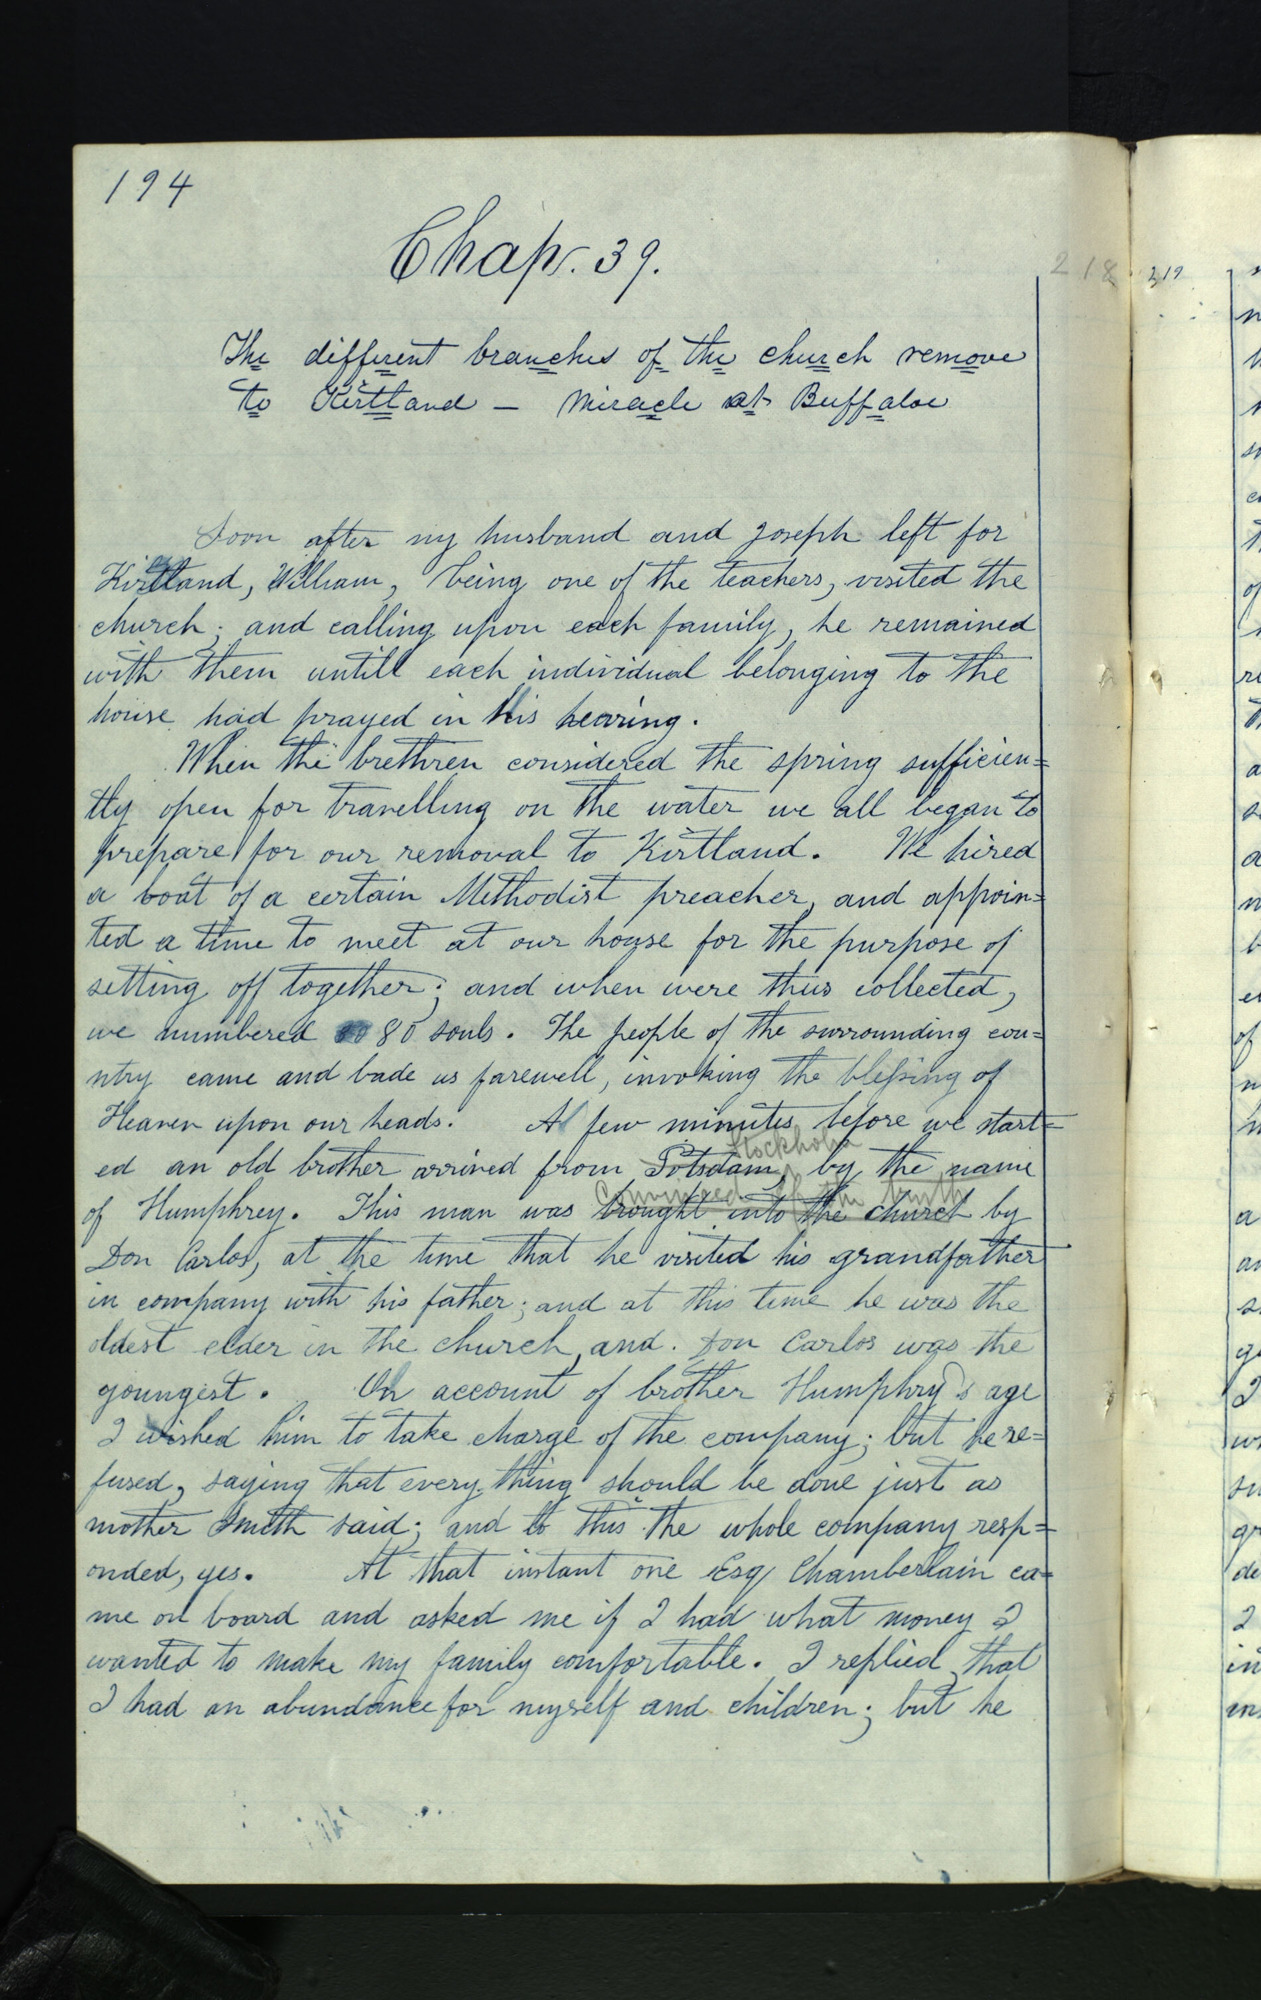 194
Chap. 39.
218
219
The different branches of the church remove
to Kirtland — Miracle at Buffaloe
Soon after my husband and Joseph left for
Kirtland, William, being one of the teachers, visited the
church; and calling upon each family, he remained
with them untill each individual belonging to the
house had prayed in his hearing.
When the brethren considered the spring sufficien=
tly open for travelling on the water we all began to
prepare for our removal to Kirtland. We hired
a boat of a certain Methodist preacher, and appoin=
ted a time to meet at our house for the purpose of
setting off together; and when were thus collected,
we numbered 80 souls. The people of the surrounding cou=
ntry came and bade us farewell, invoking the blessing of
Heaven upon our heads. A few minutes before we start=
Stockholm
ed an old brother arrived from Potsdam, by the name
Convinced of the truth
of Humphrey. This man was brought into the church by
Don Carlos, at the time that he visited his grandfather
in company with his father; and at this time he was the
oldest elder in the church, and. Don Carlos was the
youngest. On account of brother Humphry's age
I wished him to take charge of the company; but he re=
fused, saying that every thing should be done just as
mother Smith said; and to this the whole company resp=
onded, yes. At that instant one Esq Chamberlain ca=
me on board and asked me if I had what money I
wanted to make my family comfortable. I replied, that
I had an abundance for myself and children; but he